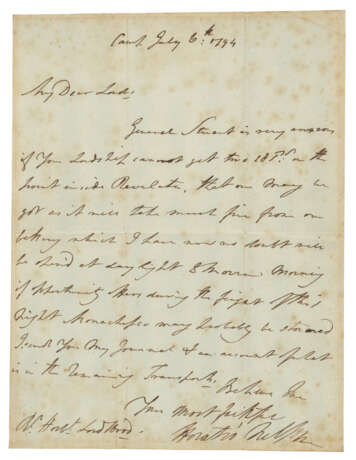 Camp July 6th: 1794
My Dear Lord,
General Stuart is very anxious
if Your Lordship cannot get two 18 Prs. on the
point inside Revelata, that one may be
got as it will take much fire from our
battery which I have now no doubt will
be open'd at day light tomorrow Morning
if opportunity during the fright of this
Night Monachesco may probably be stormed
I send You My Journal & an account of what
is in the remaining Transports.
Believe Me
Your most faithful
Horatio Nelson
Rt. Honble. Lord Hood.